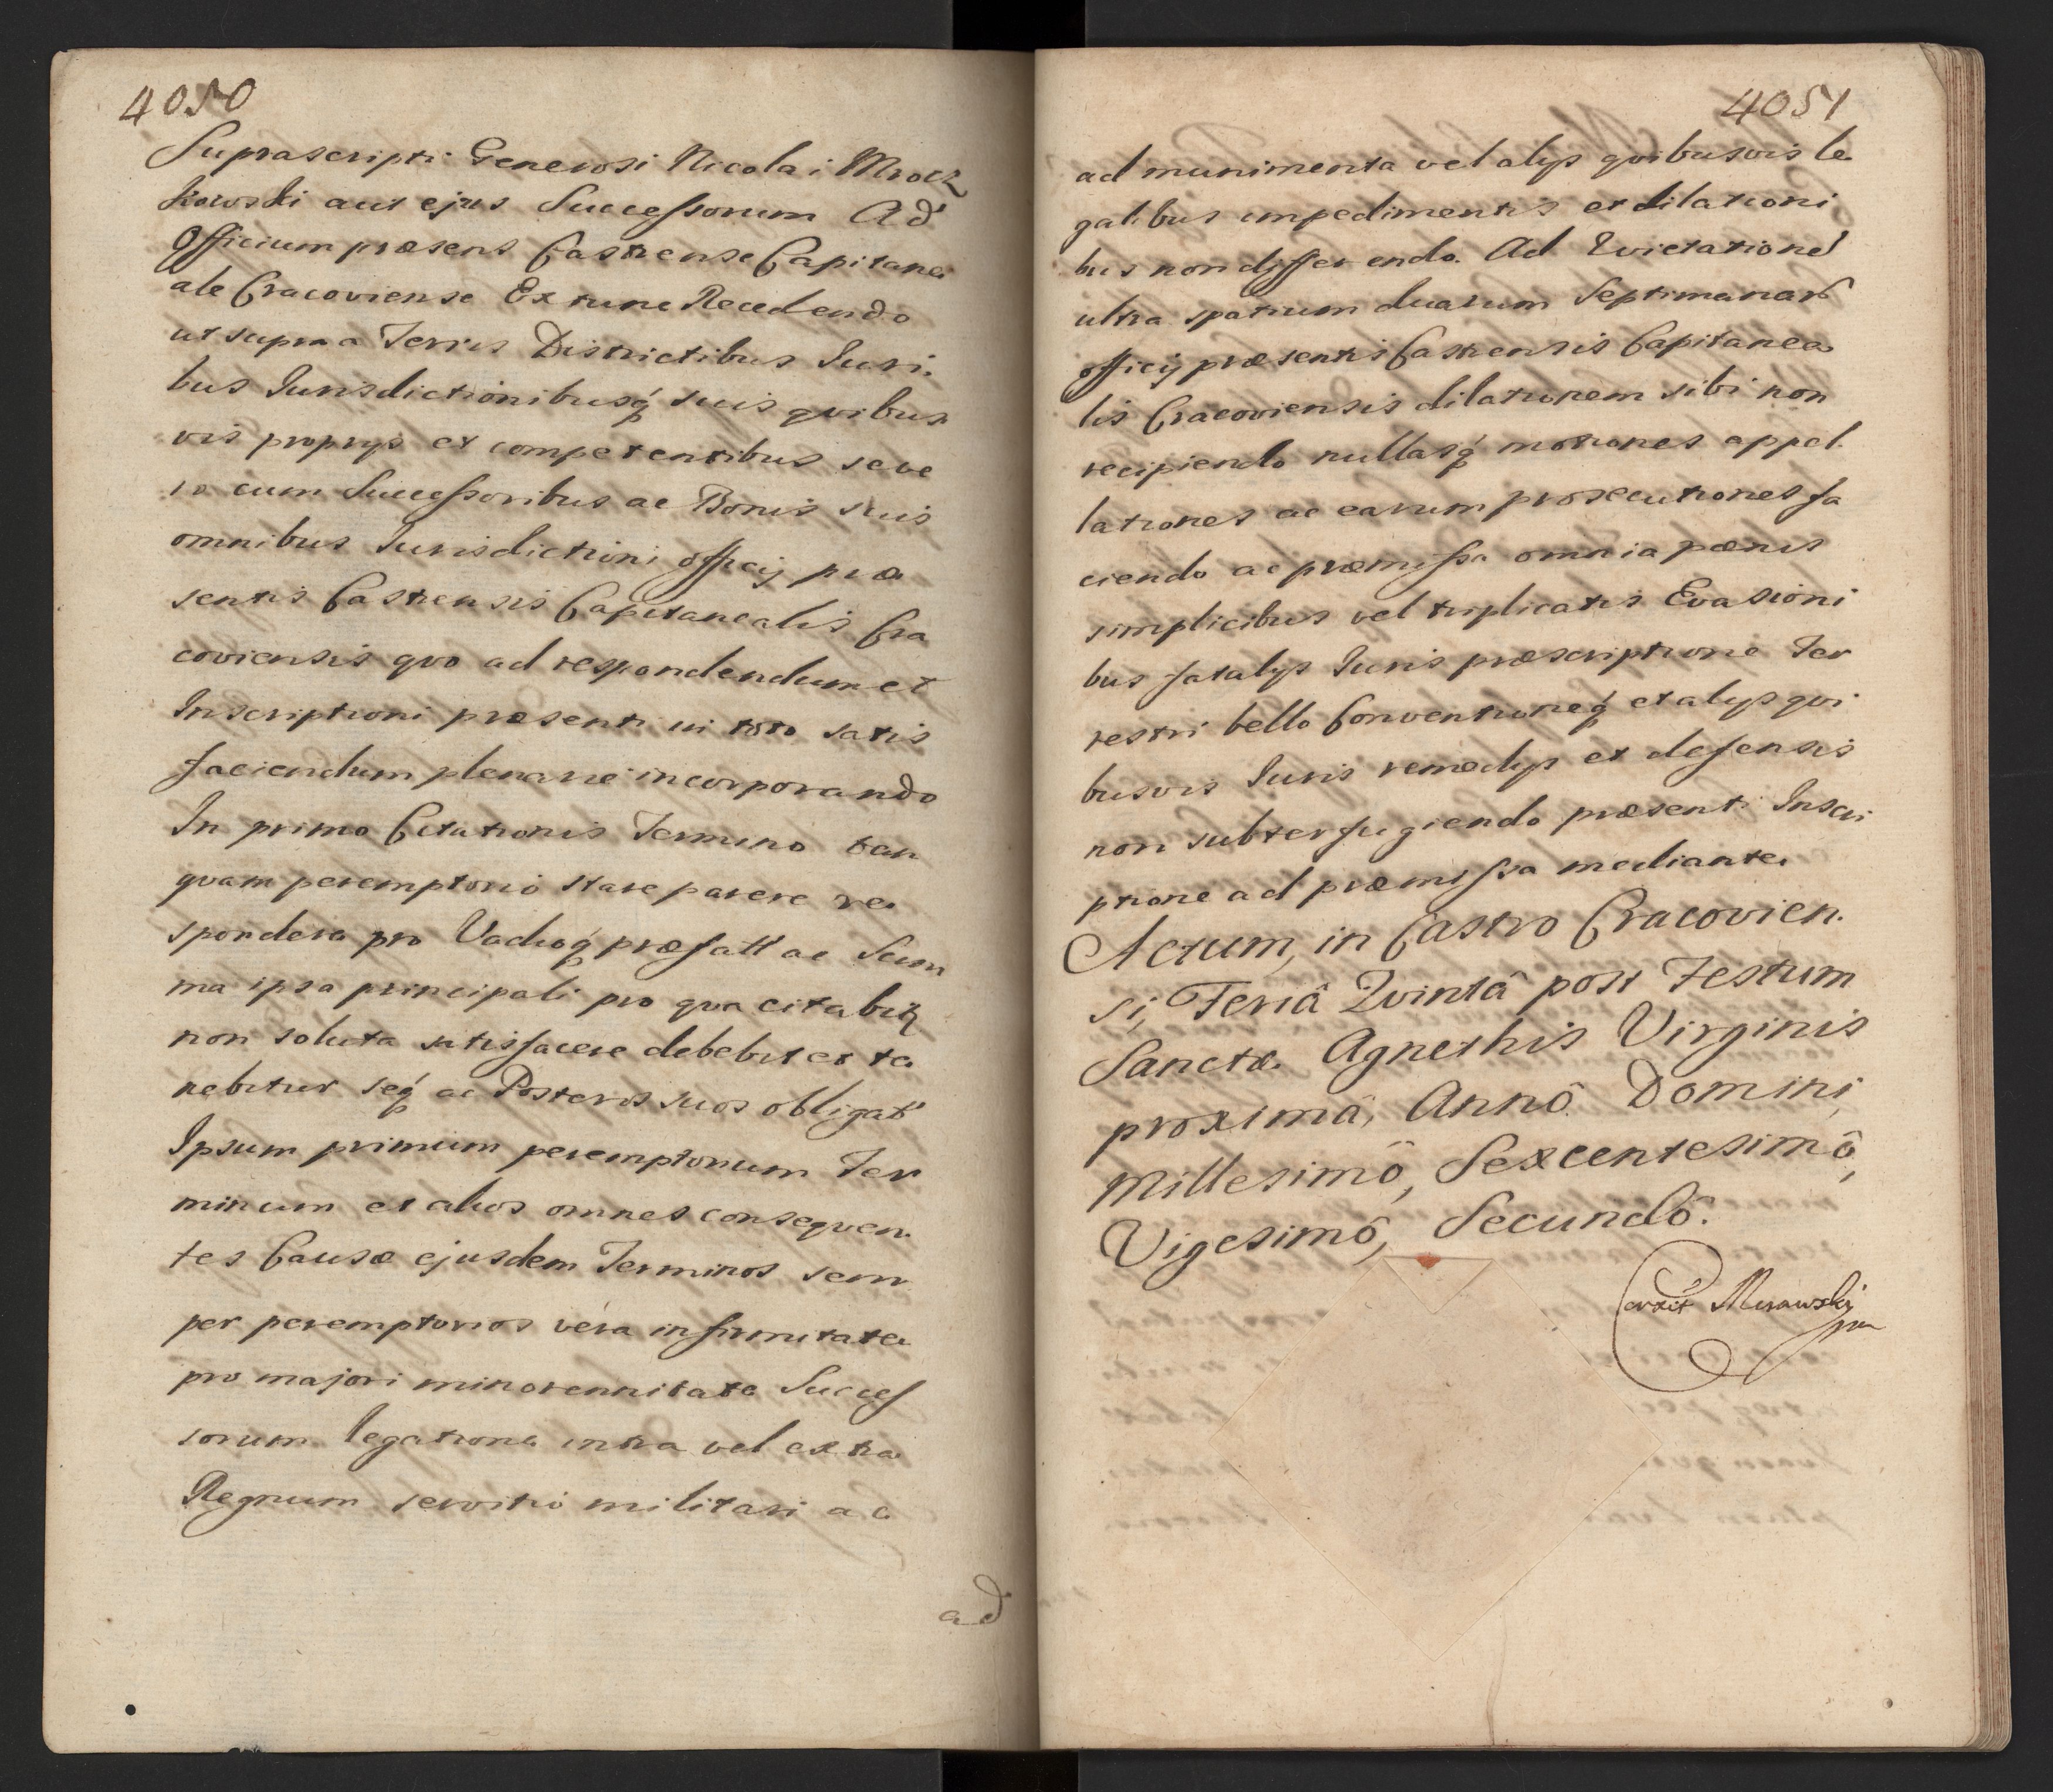 4050
Suprascripti Generosi Nicolai Mrocz
kowski aut ejus Successorum Ad
Officium præsens Castrense Capitane
ale Cracoviense Ex tunc Recedendo
ut supra a Terris Districtibus Juri
bus Jurisdictionibusq suis qvibus
vis proprys et competentibus seve
ro cum Successoribus ac Bonis suis
omnibus Jurisdictioni officij præ
sentis Castrensis Capitanealis Cra
coviensis qvo ad respondendum et
Inscriptioni præsenti in toto satis
faciendum plenarie incorporando
In primo Citationis Termino tan
qvam peremptorio stare parere re
spondere pro Vadioq præfatt ac Sum
ma ipsa principali pro qva citabitz
non soluta satisfacere debebit et te
nebitur seq ac Posteros suos obligat
Ipsum primum peremptorium Ter
minum et alios omnes conseqven
tes Causæ ejusdem Terminos sem
per peremptorios vera infirmitate
pro majori minorennitate Succes
sorum legatione intra vel extra
Regnum servitio militari ac
ad
4051
ad munimenta vel alys qvibusvis le
galibus impedimentis et dilationi
bus non differendo. Ad Evictatione
ultra spatium duarum Septimanar
officij præsentis Castrensis Capitanea
lis Cracoviensis dilationem sibi non
recipiendo nullasq motiones appel
lationes ac earum prosecutiones fa
ciendo ac præmissa omnia pænis
simplicibus vel triplicatis Evasioni
bus fatalys Juris præscriptione Ter
restri bello Conventioneq et alys qvi
busvis Juris remedys et defensis
non subterfugiendo præsenti Inscri
ptione ad præmissa mediante.
Actum, in Castro Cracovien.
si, Feriâ Qvintâ post Festum
Sanctæ Agnethis Virginis
proximâ, Annô Domini,
Millesimô, Sexcentesimô,
Vigesimô, Secundô.